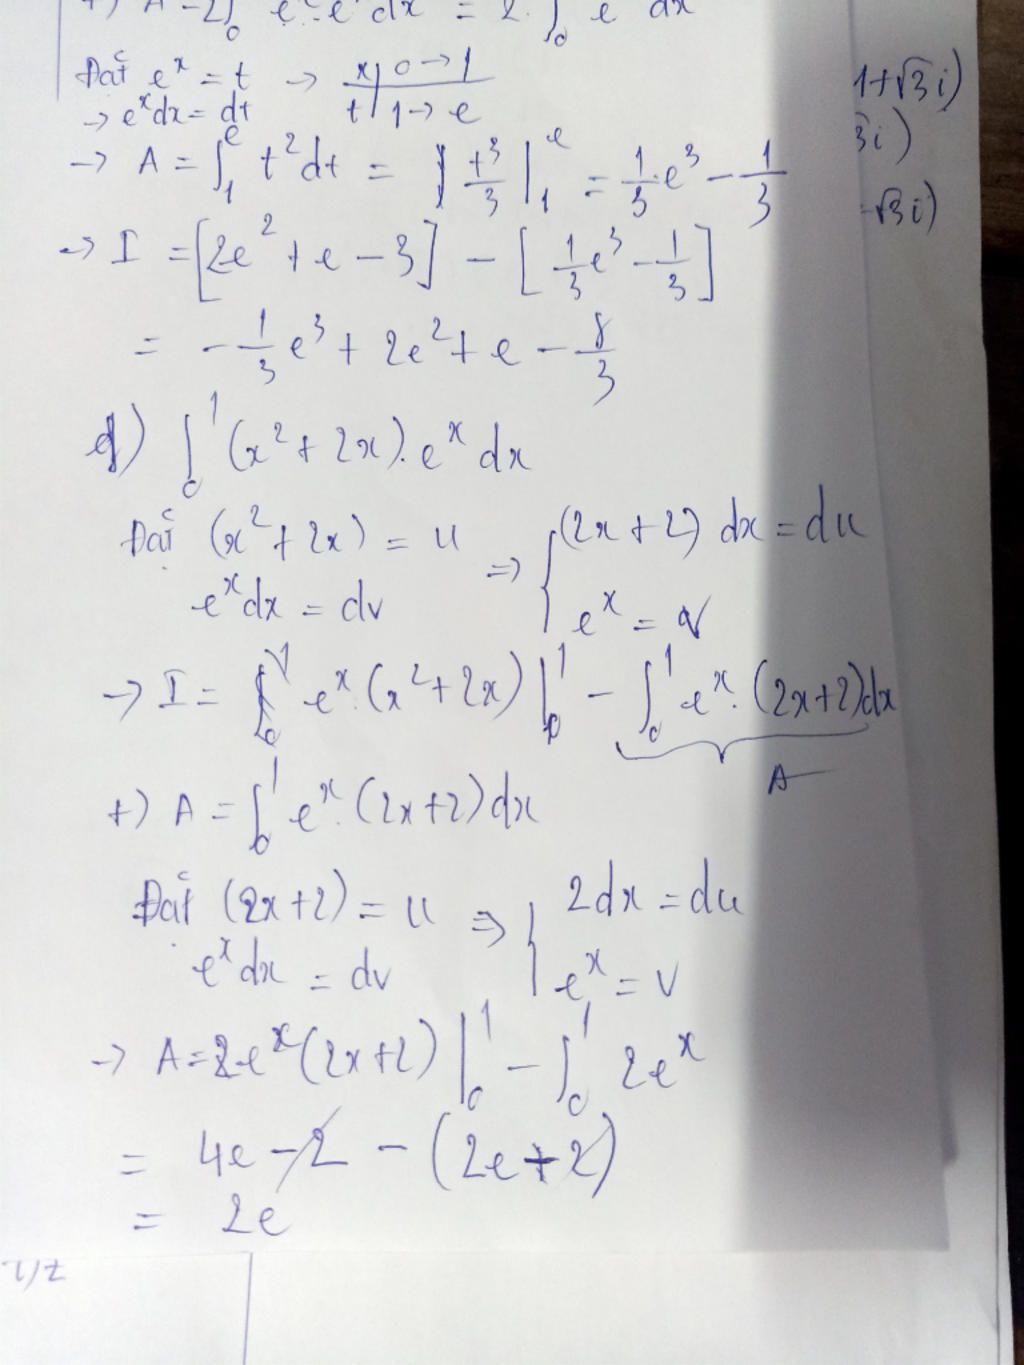 +) A = 2∫₀ eˣ·eˣdx = 2·∫₀ e dx
Đặt eˣ = t → x | 0 → 1
→ eˣdx = dt t | 1 → e
→ A = ∫₁ᵉ t²dt = t³/3 |₁ᵉ = 1/3·e³ - 1/3
→ I = [2e² + e - 3] - [1/3 e³ - 1/3]
= -1/3 e³ + 2e² + e - 8/3
d) ∫₀¹ (x² + 2x).eˣ dx
Đặt (x² + 2x) = u ⇒ { (2x + 2) dx = du
eˣdx = dv eˣ = v
→ I = eˣ.(x² + 2x) |₀¹ - ∫₀¹ eˣ.(2x+2)dx
A
+) A = ∫₀¹ eˣ.(2x+2)dx
Đặt (2x+2) = u ⇒ { 2dx = du
eˣdx = dv eˣ = v
→ A = eˣ(2x+2) |₀¹ - ∫₀¹ 2eˣ
= 4e - 2 - (2e + 2)
= 2e
1+√3i)
3i)
-√3i)